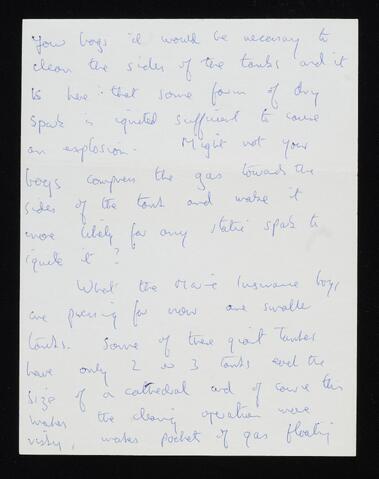 your bags it would be necessary to
clean the sides of the tanks and it
is here that some form of dry
spark is ignited sufficient to cause
an explosion. Might not your
bags compress the gas towards the
sides of the tank and make it
more likely for any static spark to
ignite it?
What the Marine Insurance boys
are pressing for now are smaller
tanks. Some of these giant tankers
have only 2 or 3 tanks each the
size of a cathedral and of course this
makes the cleaning operation more
risky, makes pockets of gas floating